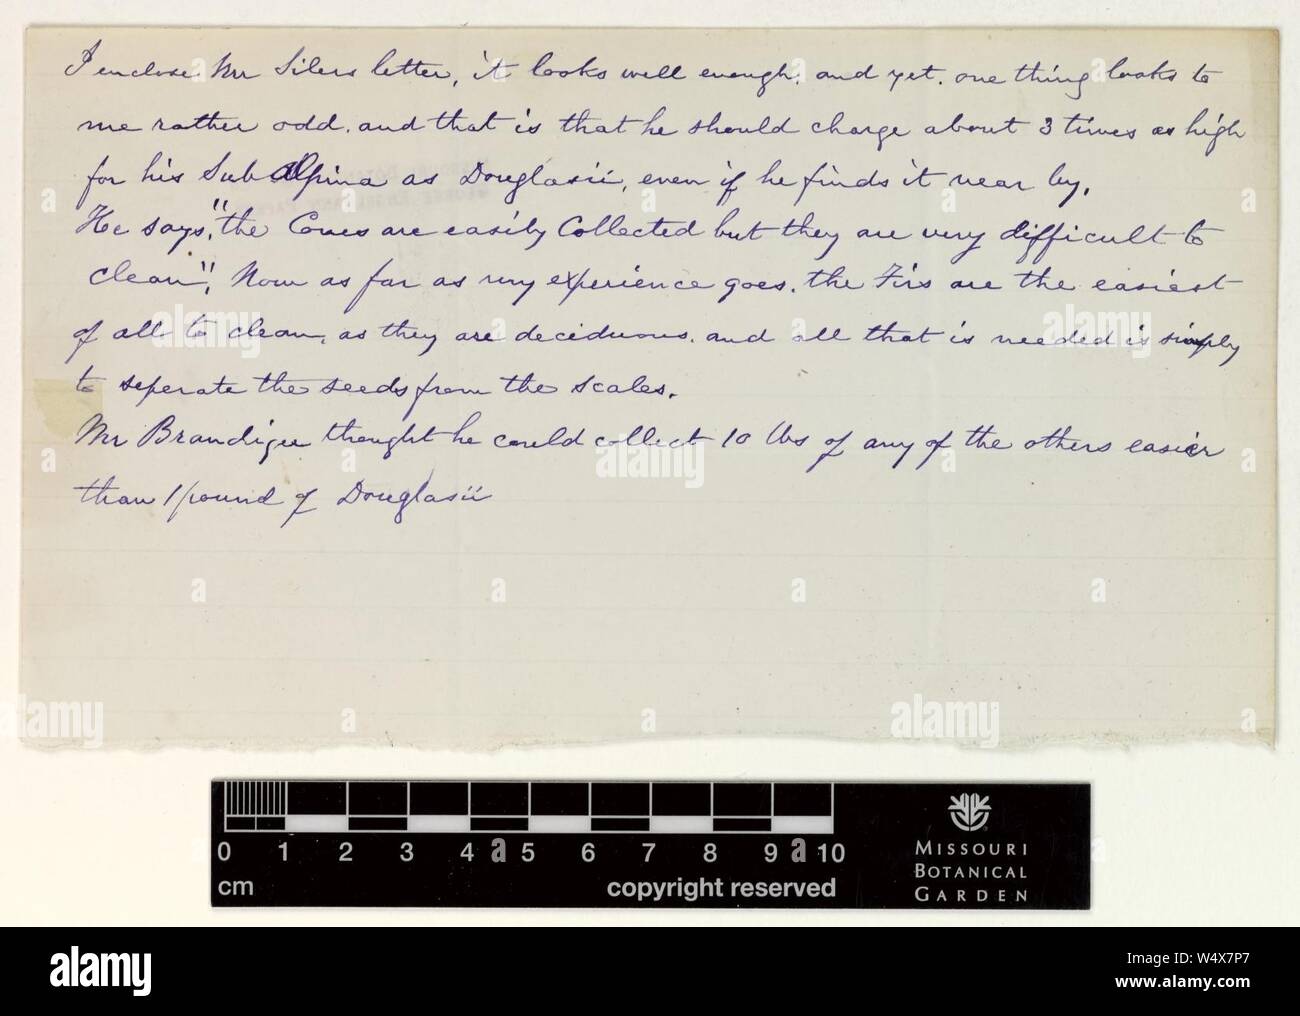 I enclose Mr Silers letter, it looks well enough. and yet. one thing looks to
me rather odd. and that is that he should charge about 3 times as high
for his Sub Alpina as Douglasii, even if he finds it near by.
He says, "the Cones are easily Collected but they are very difficult to
clean", Now as far as my experience goes. the Firs are the easiest
of all to clean, as they are deciduous. and all that is needed is simply
to seperate the seeds from the scales.
Mr Brandigee thought he could collect 10 lbs of any of the others easier
than 1 pound of Douglasii
0 1 2 3 4 5 6 7 8 9 10
cm
copyright reserved
MISSOURI
BOTANICAL
GARDEN
alamy
alamy
Image ID: W4X7P7
www.alamy.com